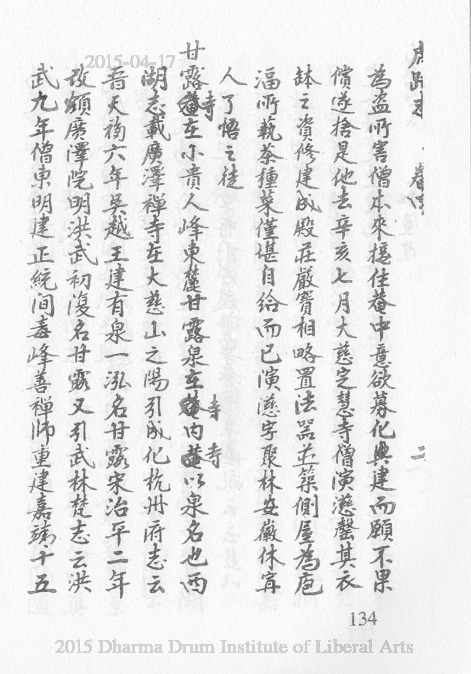 卷四
二
為盜所害僧本來接住菴中意欲募化興建而願不果
償遂捨是他去辛亥七月大慈定慧寺僧演慈罄其衣
缽之資修建成殿莊嚴寶相略置法器並築側屋為庖
湢所蓺茶種菜僅堪自給而已演慈字聚林安徽休甯
人了悟之徒
甘露寺在小貴人峰東麓甘露泉在寺內寺以泉名也西
湖志載廣澤禪寺在大慈山之陽引成化杭州府志云
晉天福六年吳越王建有泉一泓名甘露宋治平二年
改額廣澤院明洪武初復名甘露又引武林梵志云洪
武九年僧東明建正統間毒峰善禪師重建嘉靖千五
134
2015-04-17
2015 Dharma Drum Institute of Liberal Arts